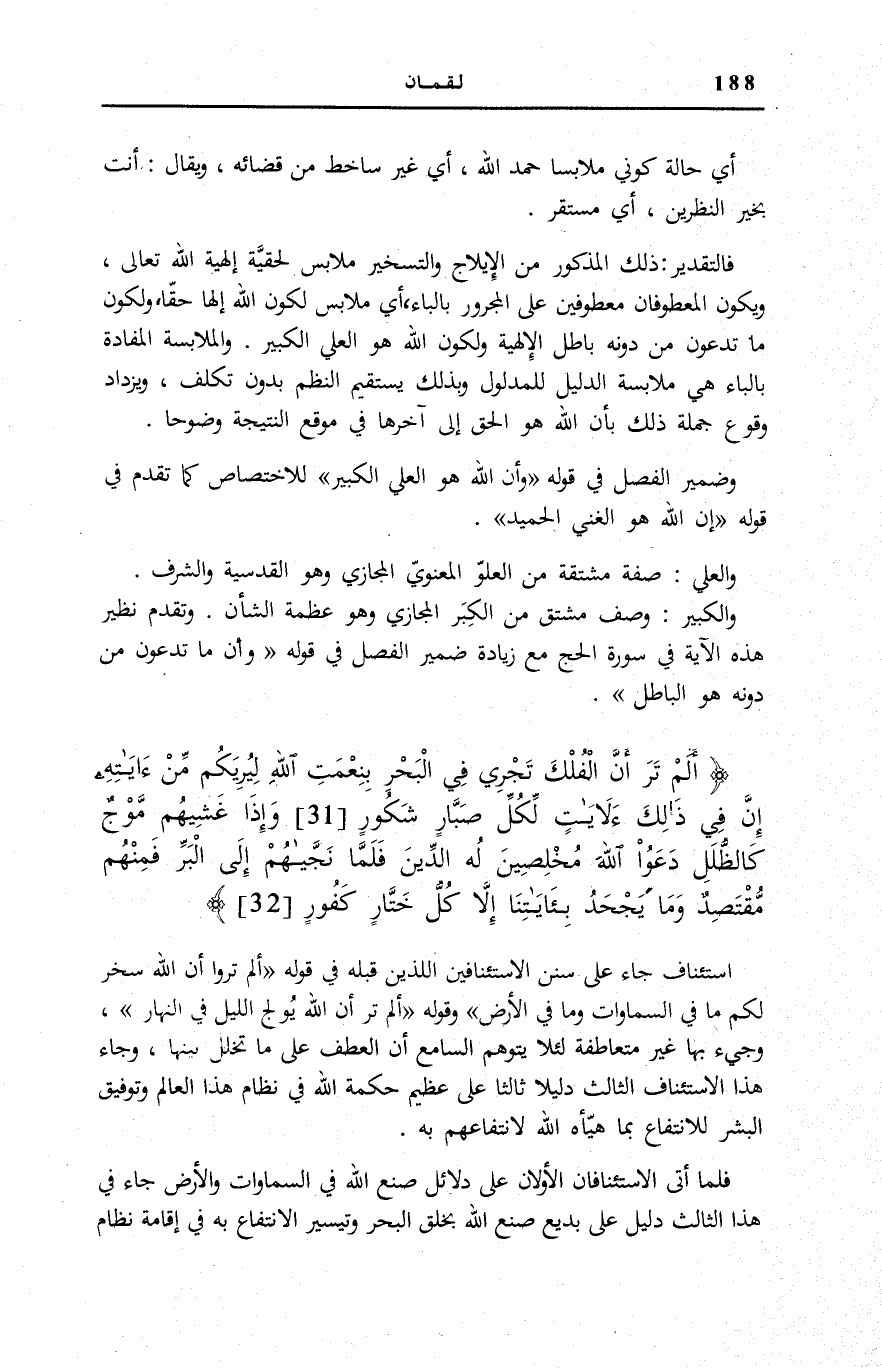 188 لقمان
أي حالة كوني ملابسا حمد الله ، أي غير ساخط من قضائه ، ويقال : أنت
بخير النظرين ، أي مستقر .
فالتقدير :ذلك المذكور من الإيلاج والتسخير ملابس لحقيَّة إلهية الله تعالى ،
ويكون المعطوفان معطوفين على المجرور بالباء،أي ملابس لكون الله إلها حقّا،ولكون
ما تدعون من دونه باطل الإلهية ولكون الله هو العلي الكبير . والملابسة المفادة
بالباء هي ملابسة الدليل للمدلول وبذلك يستقيم النظم بدون تكلف ، ويزداد
وقوع جملة ذلك بأن الله هو الحق إلى آخرها في موقع النتيجة وضوحا .
وضمير الفصل في قوله «وأن الله هو العلي الكبير» للاختصاص كما تقدم في
قوله «إن الله هو الغني الحميد» .
والعلي : صفة مشتقة من العلوّ المعنويّ المجازي وهو القدسية والشرف .
والكبير : وصف مشتق من الكِبَر المجازي وهو عظمة الشأن . وتقدم نظير
هذه الآية في سورة الحج مع زيادة ضمير الفصل في قوله « وأن ما تدعون من
دونه هو الباطل » .
﴿ أَلَمْ تَرَ أَنَّ الْفُلْكَ تَجْرِي فِي الْبَحْرِ بِنِعْمَتِ ٱللهِ لِيُرِيَكُم مِّنْ ءَايَـٰتِهِۦ
إِنَّ فِي ذَٰلِكَ ءَلَايَـٰتٍ لِّكُلِّ صَبَّارٍ شَكُورٍ [31] وَإِذَا غَشِيَهُم مَّوْجٌ
كَالظُّلَلِ دَعَوُاْ ٱللهَ مُخْلِصِينَ لَه الدِّينَ فَلَمَّا نَجَّيـٰهُمْ إِلَى الْبَرِّ فَمِنْهُم
مُّقْتَصِدٌ وَمَا يَجْحَدُ بِـئَايَـٰتِنَا إِلَّا كُلُّ خَتَّارٍ كَفُورٍ [32] ﴾
استئناف جاء على سنن الاستئنافين اللذين قبله في قوله «ألم تروا أن الله سخر
لكم ما في السماوات وما في الأرض» وقوله «ألم تر أن الله يُولج الليل في النهار » ،
وجيء بها غير متعاطفة لئلا يتوهم السامع أن العطف على ما تخلل بينها ، وجاء
هذا الاستئناف الثالث دليلا ثالثا على عظيم حكمة الله في نظام هذا العالم وتوفيق
البشر للانتفاع بما هيّأه الله لانتفاعهم به .
فلما أتى الاستئنافان الأولان على دلائل صنع الله في السماوات والأرض جاء في
هذا الثالث دليل على بديع صنع الله بخلق البحر وتيسير الانتفاع به في إقامة نظام